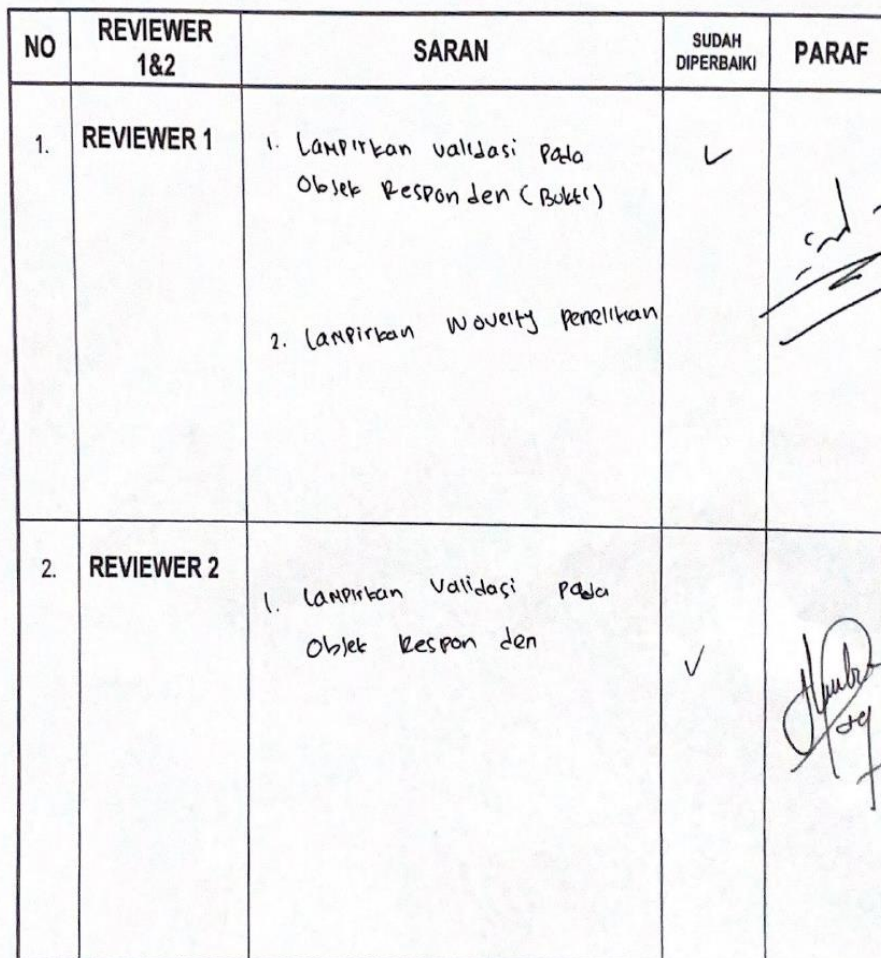 NO
REVIEWER
1&2
SARAN
SUDAH
DIPERBAIKI
PARAF
1.
REVIEWER 1
1. Lampirkan validasi pada
Objek Responden (Bukti)
2. Lampirkan Novelty penelitian
2.
REVIEWER 2
1. Lampirkan Validasi pada
Objek Respon den